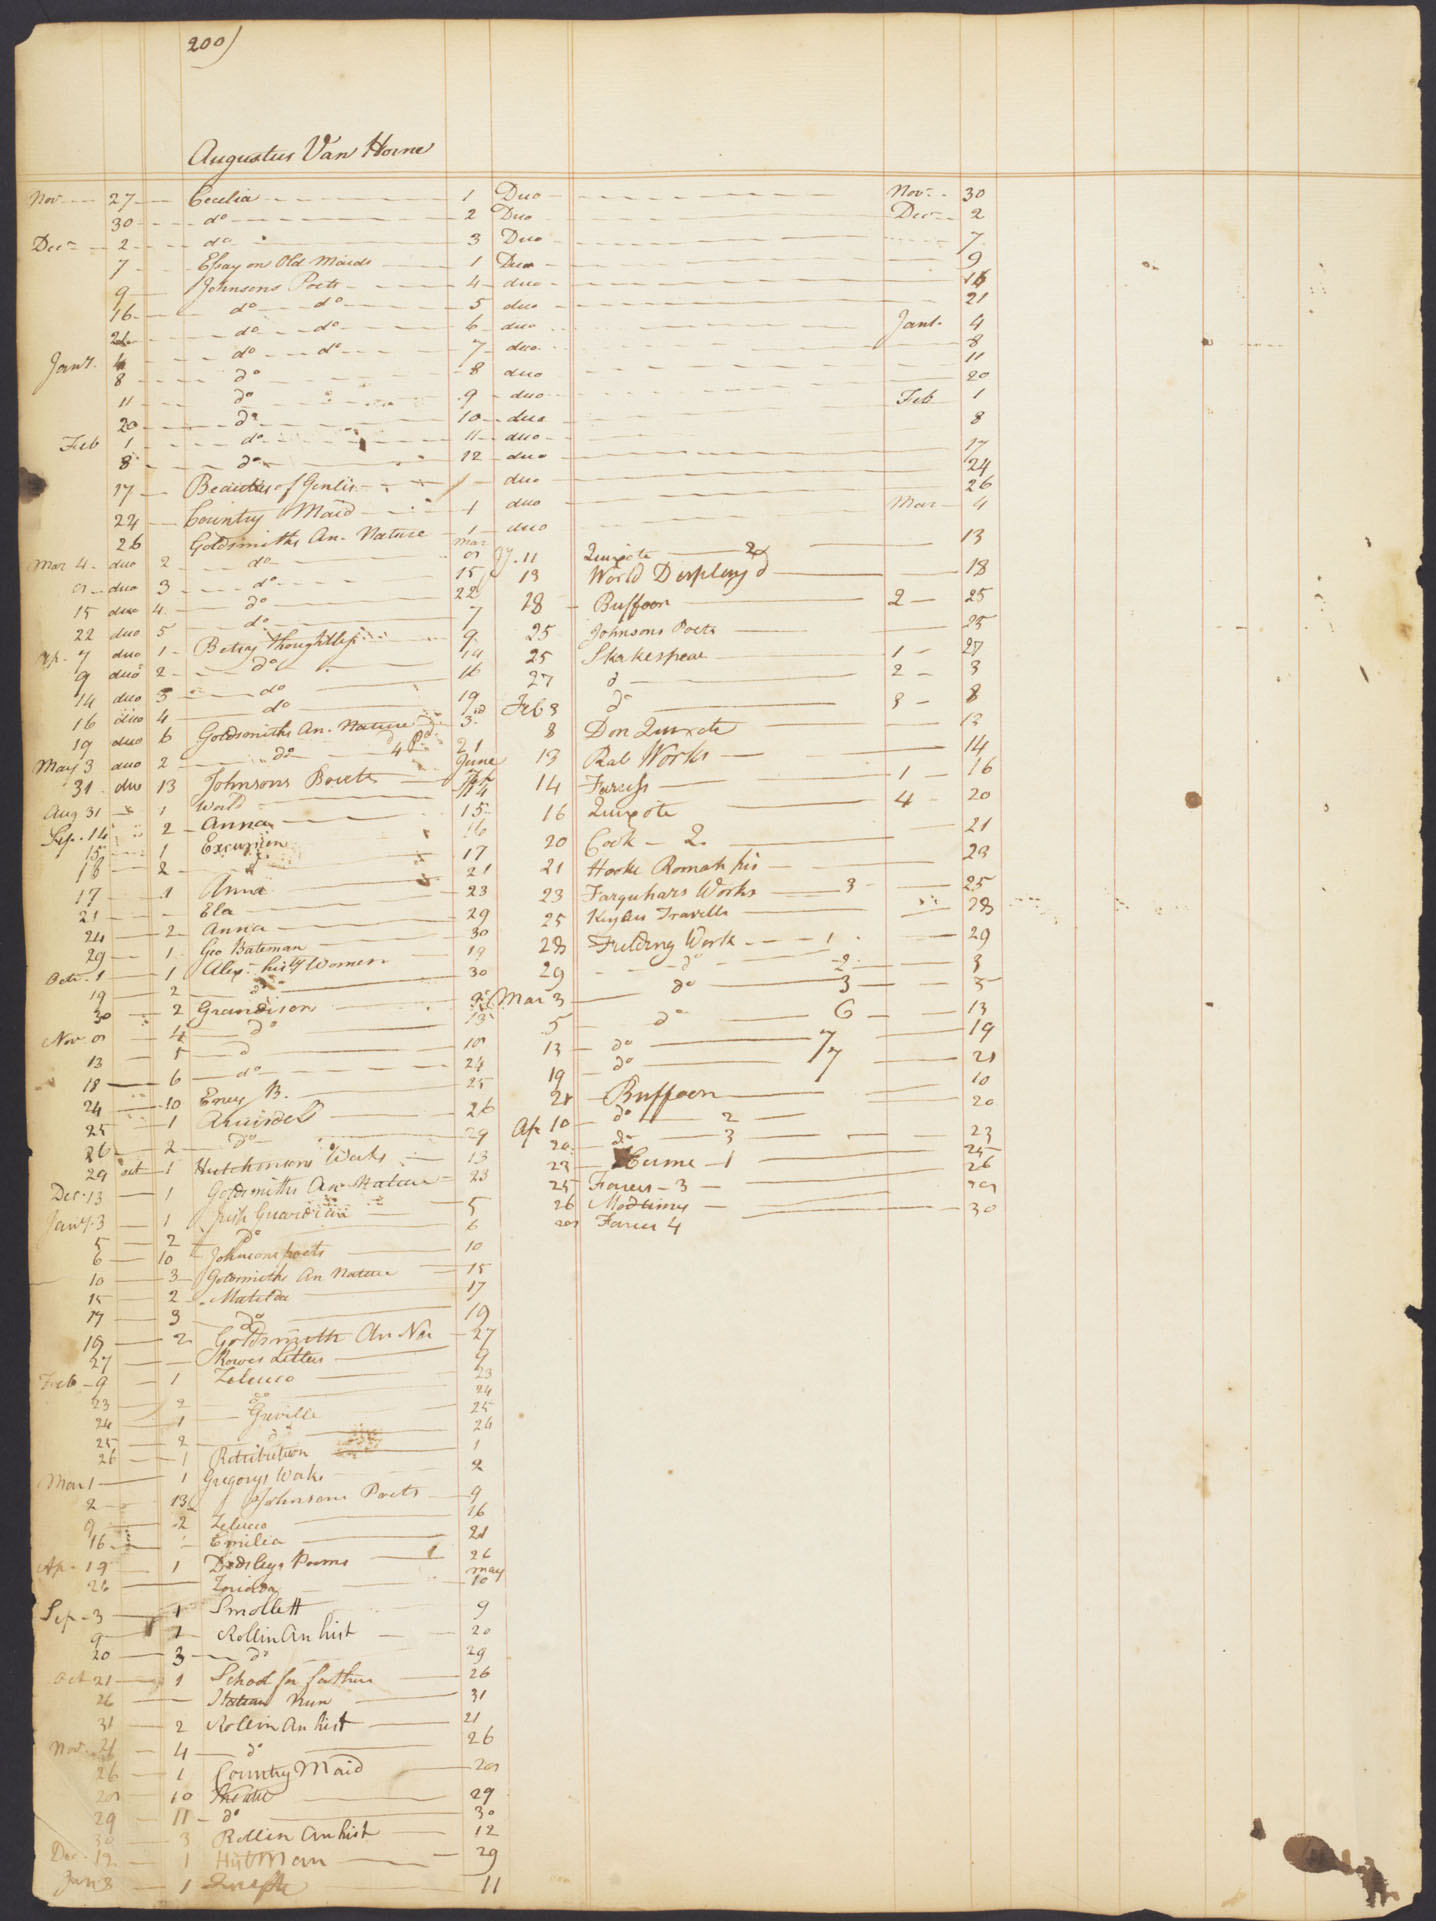 200)
Augustus Van Horne
Nov 27 Cecelia 1 Duo Nov 30
30 do 2 Duo Decr 2
Decr 2 do 3 Duo 7
7 Essay on Old Maids 1 Duo 9
9 Johnsons Poets 4 duo 16
16 do do 5 duo 21
21 do do 6 duo Jany 4
Jany 4 do do 7 duo 8
8 do 8 duo 11
11 do 9 duo 20
20 do 10 duo Feb 1
Feb 1 do 11 duo 8
8 do 12 duo 17
17 Beauties of Genlis 1 duo 24
24 Country Maid 1 duo 26
26 Goldsmiths An. Nature 1 duo Mar 4
Mar 4 duo 2 do Mar
duo 3 do 15
15 duo 4 do 22
22 duo 5 do 7
Ap. 7 duo 1 Betsy thoughtless 9
9 duo 2 do 14
14 duo 3 do 16
16 duo 4 do 19
19 duo 6 Goldsmiths An. Nature 3
May 3 duo 2 do 21
31 duo 13 Johnsons Poets June
Aug 31 1 World 14
Sep. 14 2 Anna 15
15 1 Excursion 16
16 2 d 17
17 1 Anna 21
21 Ela 23
24 2 Anna 29
29 1 Geo Bateman 30
Octr 1 1 Alexr histy Women 19
19 2 do 30
30 2 Grandison
Nov 4 do 13
13 5 d
18 6 do 24
24 10 Eney B. 25
25 1 Arundel 26
26 2 do 29
29 oct 1 Hutchinsons Works 13
Dec. 13 1 Goldsmiths An Nature 23
Jany. 3 1 Irish Guardian 5
5 2 Do 6
6 10 Johnsons poets 10
10 3 Goldsmiths An Nature 15
15 2 Matilda 17
17 3 Do 19
19 2 Goldsmith An Na 27
27 Rowes Letters 9
Feb 9 1 Zeluco 23
23 2 do 24
24 1 Greville 25
25 2 d 26
26 1 Retribution 1
Mar 1 1 Gregorys Works 2
2 13 Johnsons Poets 9
9 2 Zeluco 16
16 Emilia 21
Ap. 19 1 Dodsleys Poems 26
26 Zoriada May 10
Sep. 3 1 Smollett 9
9 Rollin An hist 20
20 3 do 29
Oct 21 1 School for fathers 26
26 Italian Nun 31
31 2 Rollin An hist 21
Nov. 21 4 do 26
26 1 Country Maid 28
28 10 Theatre 29
29 11 do 30
30 3 Rollin An hist 12
Dec. 12 1 29
Jan 8 1 11
11 Quixote 2d 13
13 World Displayd 18
18 Buffoon 2 25
25 Johnsons Poets 25
25 Shakespear 1 27
27 d 2 3
Feb 3 do 3 8
8 Don Quixote 13
13 Rab Works 14
14 Farces 1 16
16 Quixote 4 20
20 Cook 2 21
21 Hooke Roman his 23
23 Farquhars Works 3 25
25 Keysers Travells 28
28 Fielding Work 1 29
29 do 2 3
Mar 3 do 3 5
5 do 6 13
13 do 7 19
19 do 7 21
21 Buffoon 10
Ap 10 do 2 20
20 do 3 23
23 Hume 1 25
25 Farces 3 26
26 Modtimes 28
28 Farces 4 30